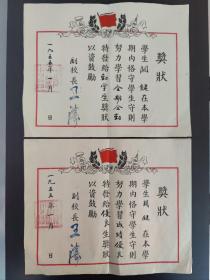 獎狀
學生 健在本學
期內恪守學生守則
努力學習全勤全勤
特發給 學生獎狀
以資鼓勵
副校長
一九五五年一月 日
獎狀
學生 健在本學
期內恪守學生守則
努力學習成績優良
特發給優良生獎狀
以資鼓勵
副校長
一九五五年一月 日